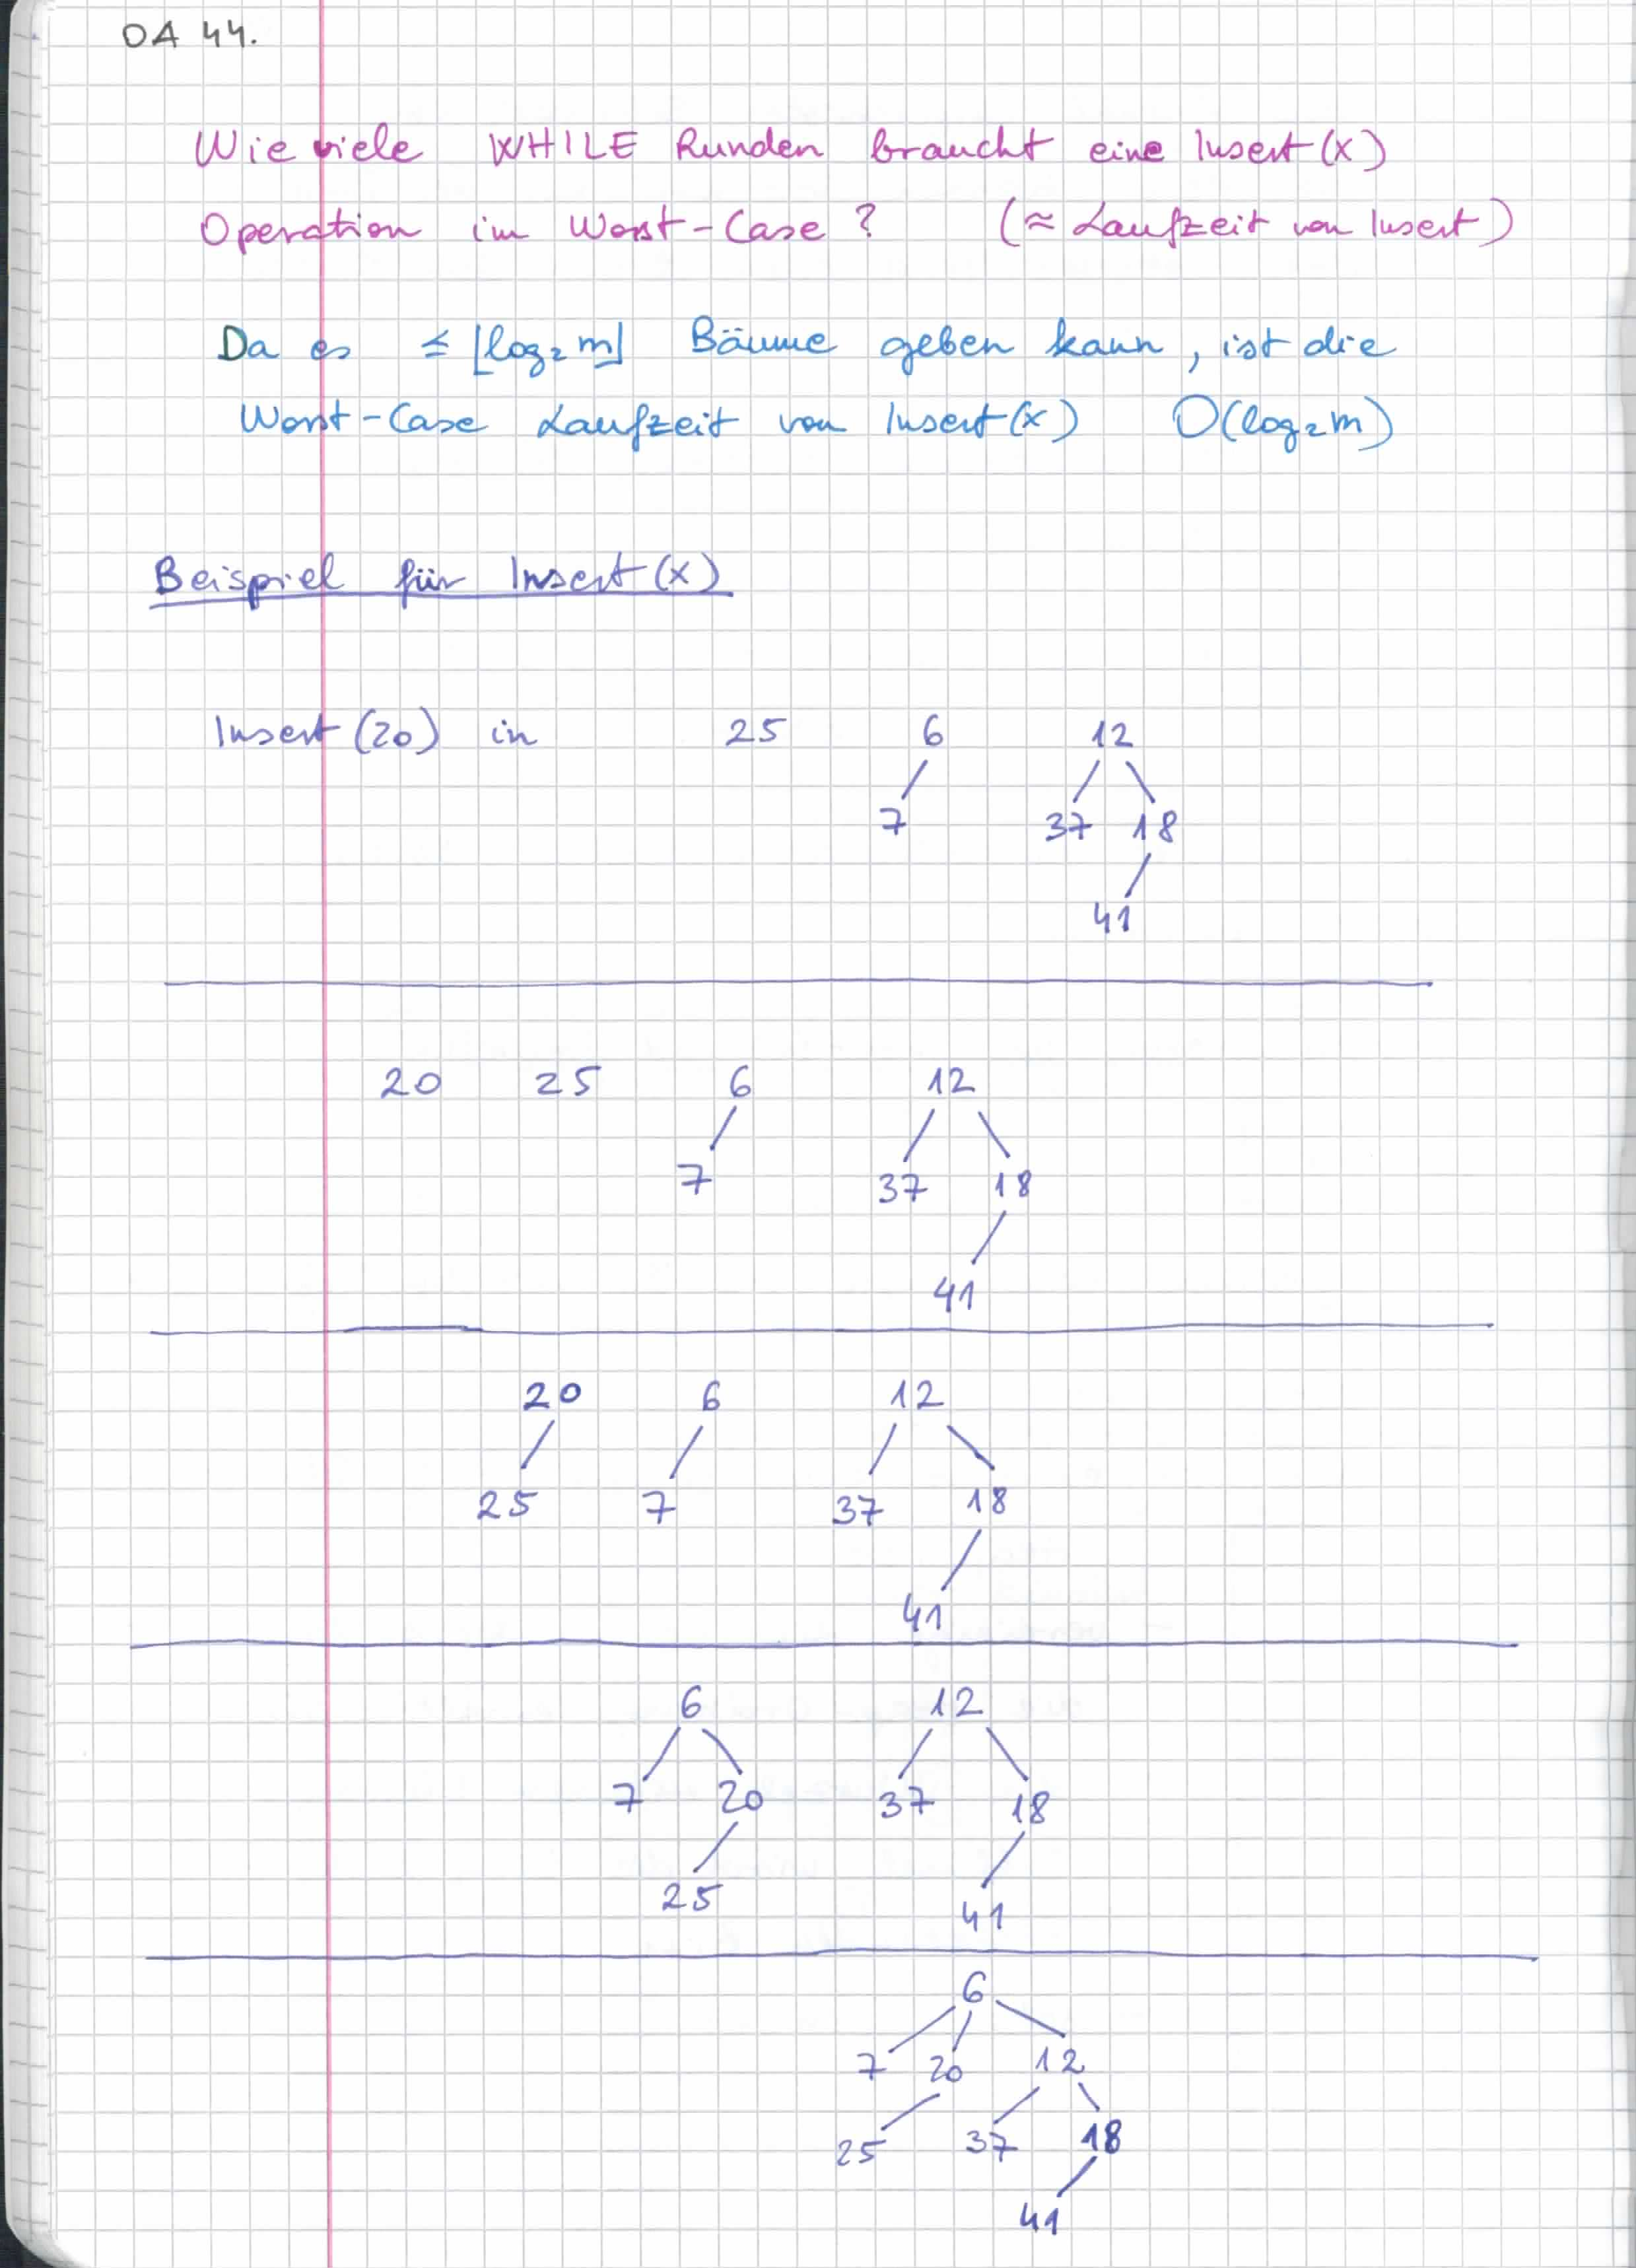 DA 44.
Wie viele WHILE Runden braucht eine Insert(x)
Operation im Worst-Case? (≈ Laufzeit von Insert)
Da es ≤ ⌊log₂ m⌋ Bäume geben kann, ist die
Worst-Case Laufzeit von Insert(x) O(log₂ m)
Beispiel für Insert(x)
Insert(20) in 25 6 12
7 37 18
41
20 25 6 12
7 37 18
41
20 6 12
25 7 37 18
41
6 12
7 20 37 18
25 41
6
7 20 12
25 37 18
41